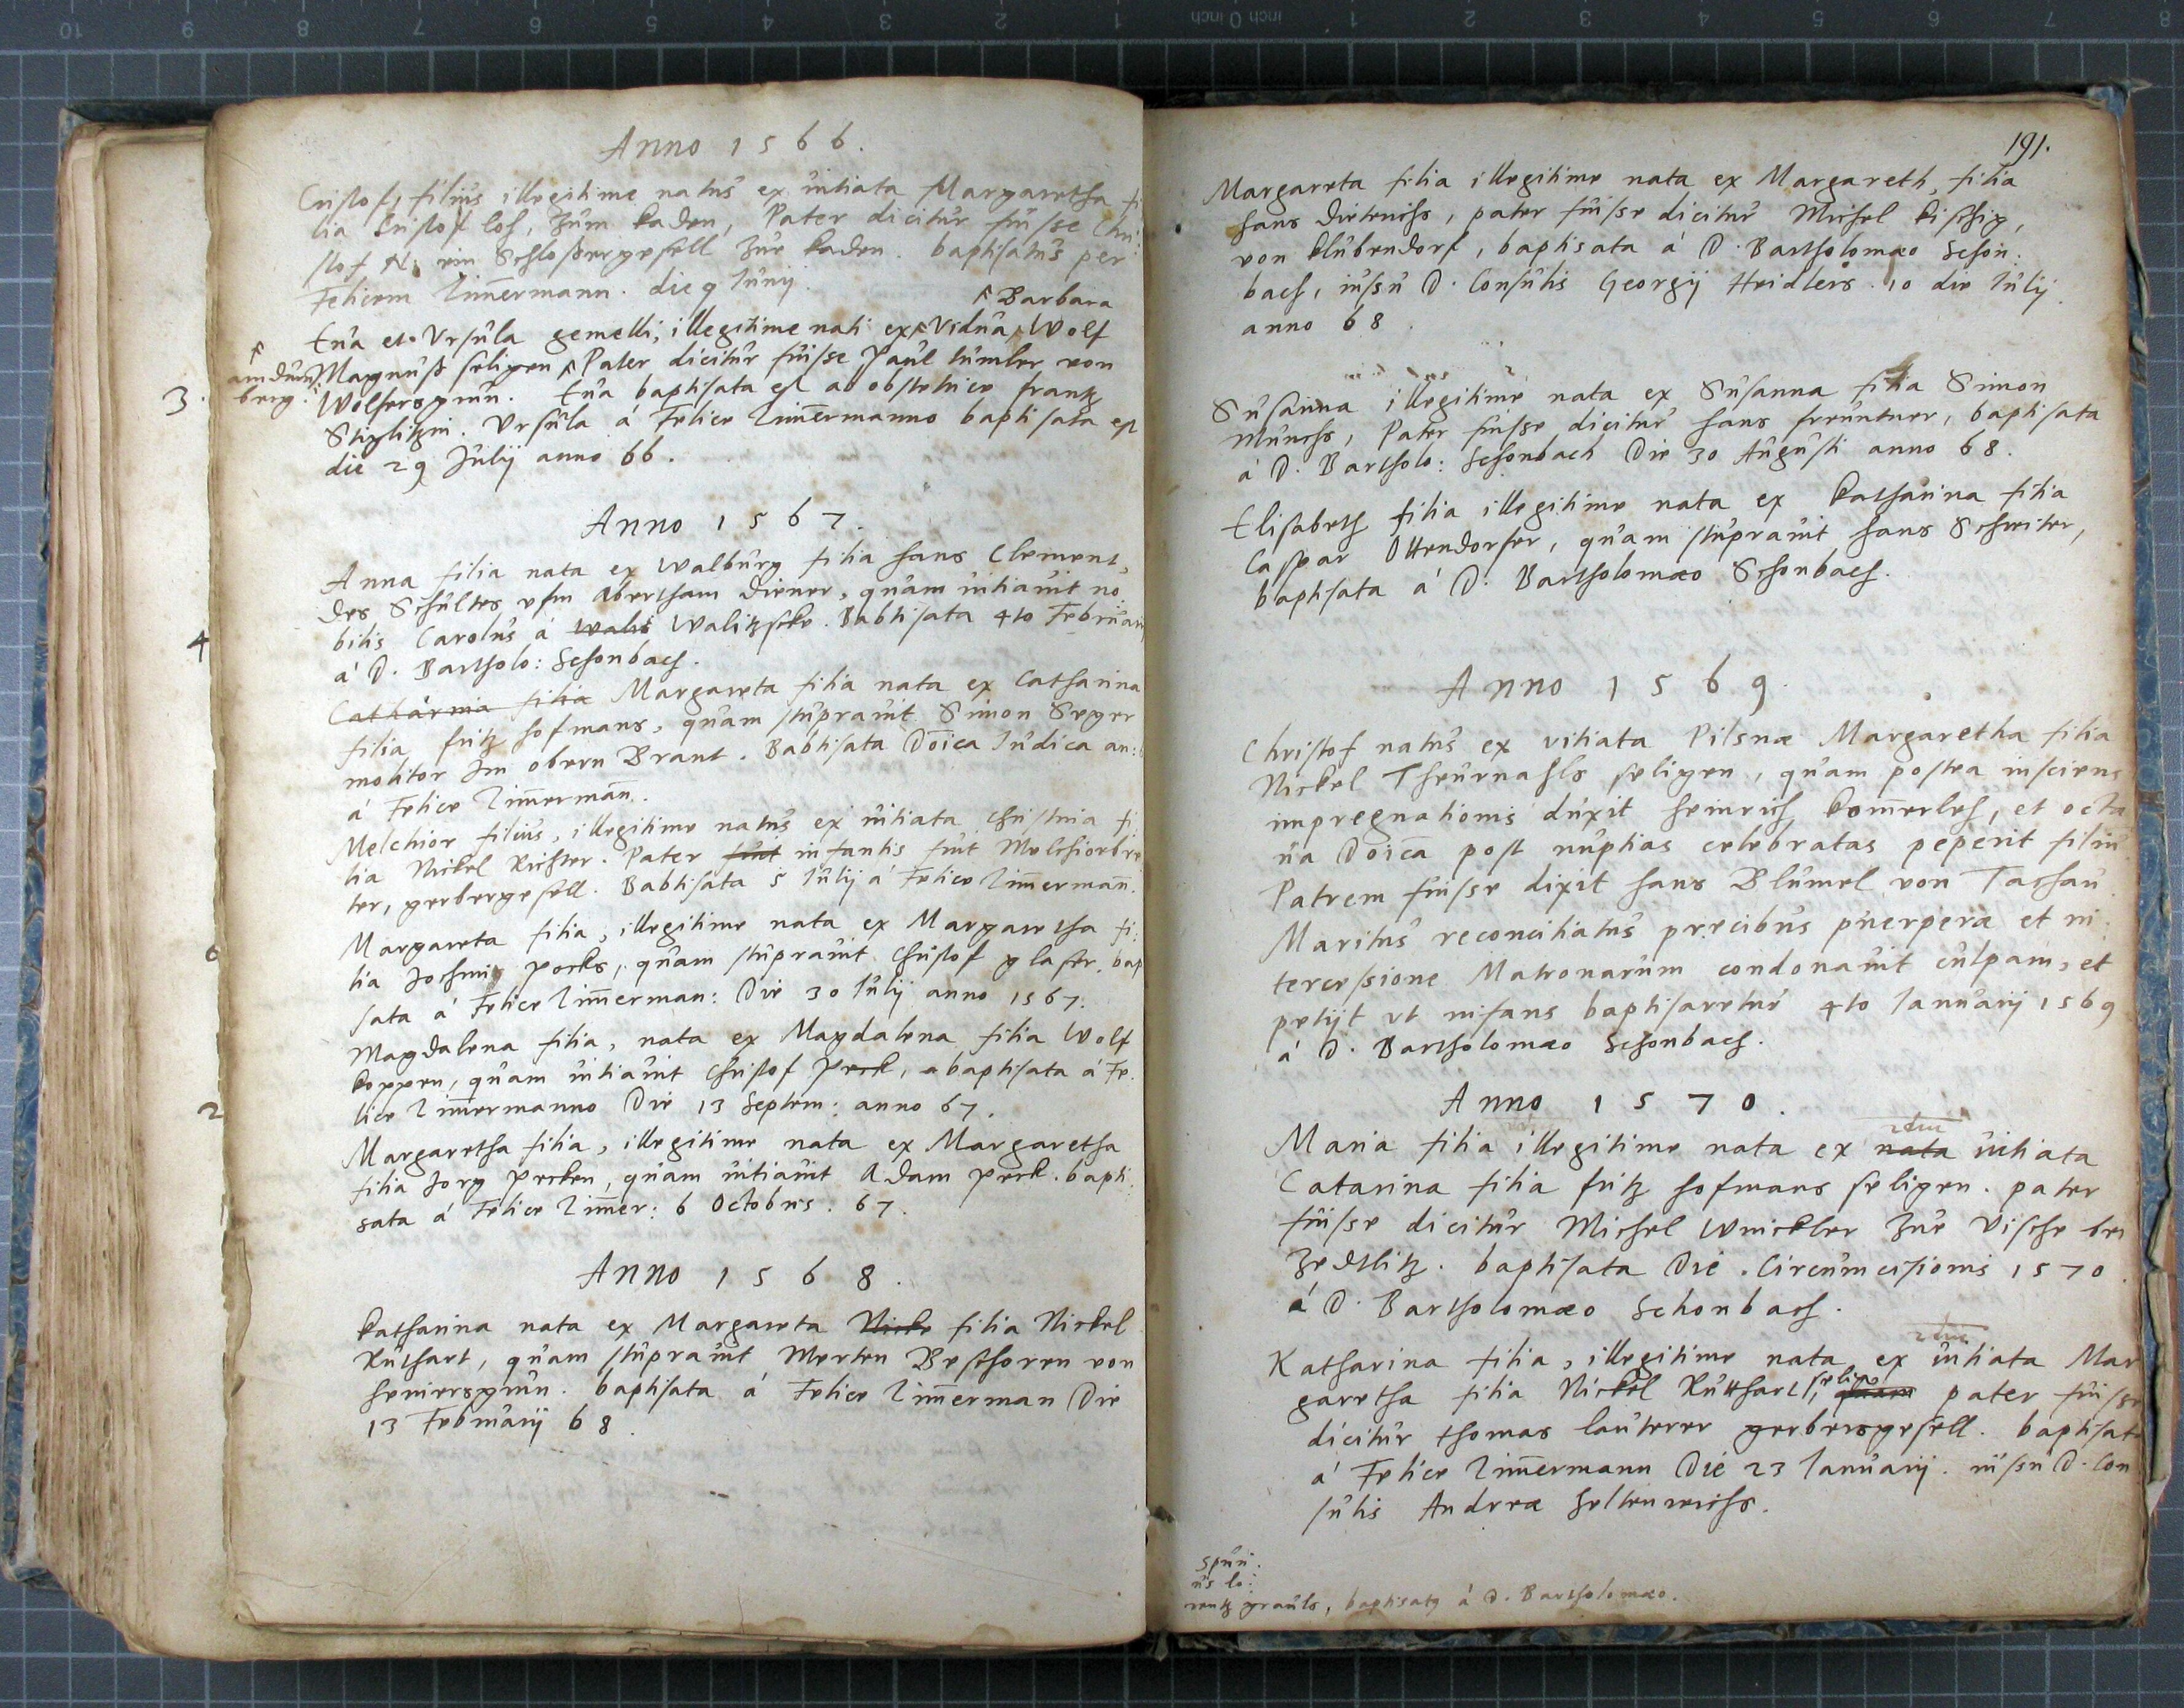 Anno 1566.
Cristof, filius illegitime natus ex uitiata Margaretha fi
lia Cristof Loh, zum Kaden, Pater dicitur fuisse Chri
stof N. ein Schlossergesell zur Kaden. baptisatus per
Felicem Zim̄ermann. die 9 Junij.
Barbara
Eua et Ursula gemelli, illegitime nati ex Vidua Wolf
Magnuß seligen Pater dicitur fuisse Paul von
am
berg.
3.
Wolfersgrun. Eua baptisata est ab obstetrice frantz
Stiglitzin. Ursula á Felice Zim̄ermanno baptisata est
die 29 Julij anno 66.
Anno 1567.
Anna filia nata ex Walburg filia Hans Clement,
des Schultes ufm Abertham diener, quam uitiauit no
bilis Carolus á Walis Walitzske. Babtisata 4to Februarij
4
á D. Bartholo: Schonbach.
Catharina filia Margareta filia nata ex Catharina
filia fritz Hofmans, quam stuprauit Simon Seger
molitor Im obern Brant. Babtisata Doīca Iudica an:
á Felice Zim̄erman̄.
Melchior filius, illegitime natus ex uitiata Christina fi
lia Nickel Richter. Pater fuit infantis fuit Melchior
ter, gerbergesell. Babtisata 5 Iulij á Felice Zim̄erman̄.
Margareta filia, illegitime nata ex Margaretha fi:
6
lia Jochim Pecks, quam stuprauit Christof glaser, bap
sata á Felice Zim̄erman: Die 30 Iulij anno 1567.
Magdalena filia, nata ex Magdalena filia Wolf
Koppen, quam uitiauit Christof Peck, abaptisata á Fe
2
lice Zim̄ermanno Die 13 Septem: anno 67.
Margaretha filia, illegitime nata ex Margaretha
filia Jorg Pecken, quam uitiauit Adam Peck. bapti
sata á Felice Zim̄er: 6 Octobris. 67.
Anno 1568.
Katharina nata ex Margareta Nicke filia Nickel
Ruthart, quam stuprauit Merten Beschoren von
Heniersgrun. baptisata á Felice Zim̄erman Die
13 Februarij 68.
191.
Margareta filia illegitime nata ex Margareth, filia
Hans Dietrichs, pater fuisse dicitur Michel Kischig,
von Klubendorf, baptisata á D. Bartholomæo Schon:
bach, iussu D. Consulis Georgij Heidlers. 10 die Iulij
anno 68.
Susanna illegitime nata ex Susanna filia Simon
Munchs, Pater fuisse dicitur Hans freuntner, baptisata
á D. Bartholo: Schonbach Die 30 Augusti anno 68.
Elisabeth filia illegitime nata ex Katharina filia
Caspar Ottendorfer, quam stuprauit Hans Schreiter,
baptisata á D. Bartholomæo Schonbach.
Anno 1569.
Christof natus ex vitiata Pilsnæ Margaretha filia
Nickel Theurnahls seligen, quam postea insciens
impregnationis duxit Heinrich Kom̄erleh, et octa
ua Doīca post nuptias celebratas peperit filiū
Patrem fuisse dixit Hans Blumel von Tachau.
Maritus reconciliatus precibus puerperæ et in:
tercessione Matronarum condonauit culpam, et
petijt ut infans baptisaretur 4to Ianuarij 1569
á D. Bartholomæo Schonbach.
Anno 1570.
Maria filia illegitime nata ex nata uitiata
Catarina filia fritz Hofmans seligen. pater
fuisse dicitur Michel Winckler zur Vische bei
Zedtlitz. baptisata Die Circumcisionis 1570.
á D. Bartholomæo Schonbach.
Katharina filia, illegitime nata ex uitiata Mar
garetha filia Nickel Rutthart selig, quam pater fuisse
dicitur Thomas Lauterer gerbersgesell. baptisata
á Felice Zim̄ermann Die 23 Ianuarij. iussu D. Con
sulis Andreæ Heltenreichs.
Spuri:
us Lo:
rentz grauls, baptisatꝰ á D. Bartholomæo.